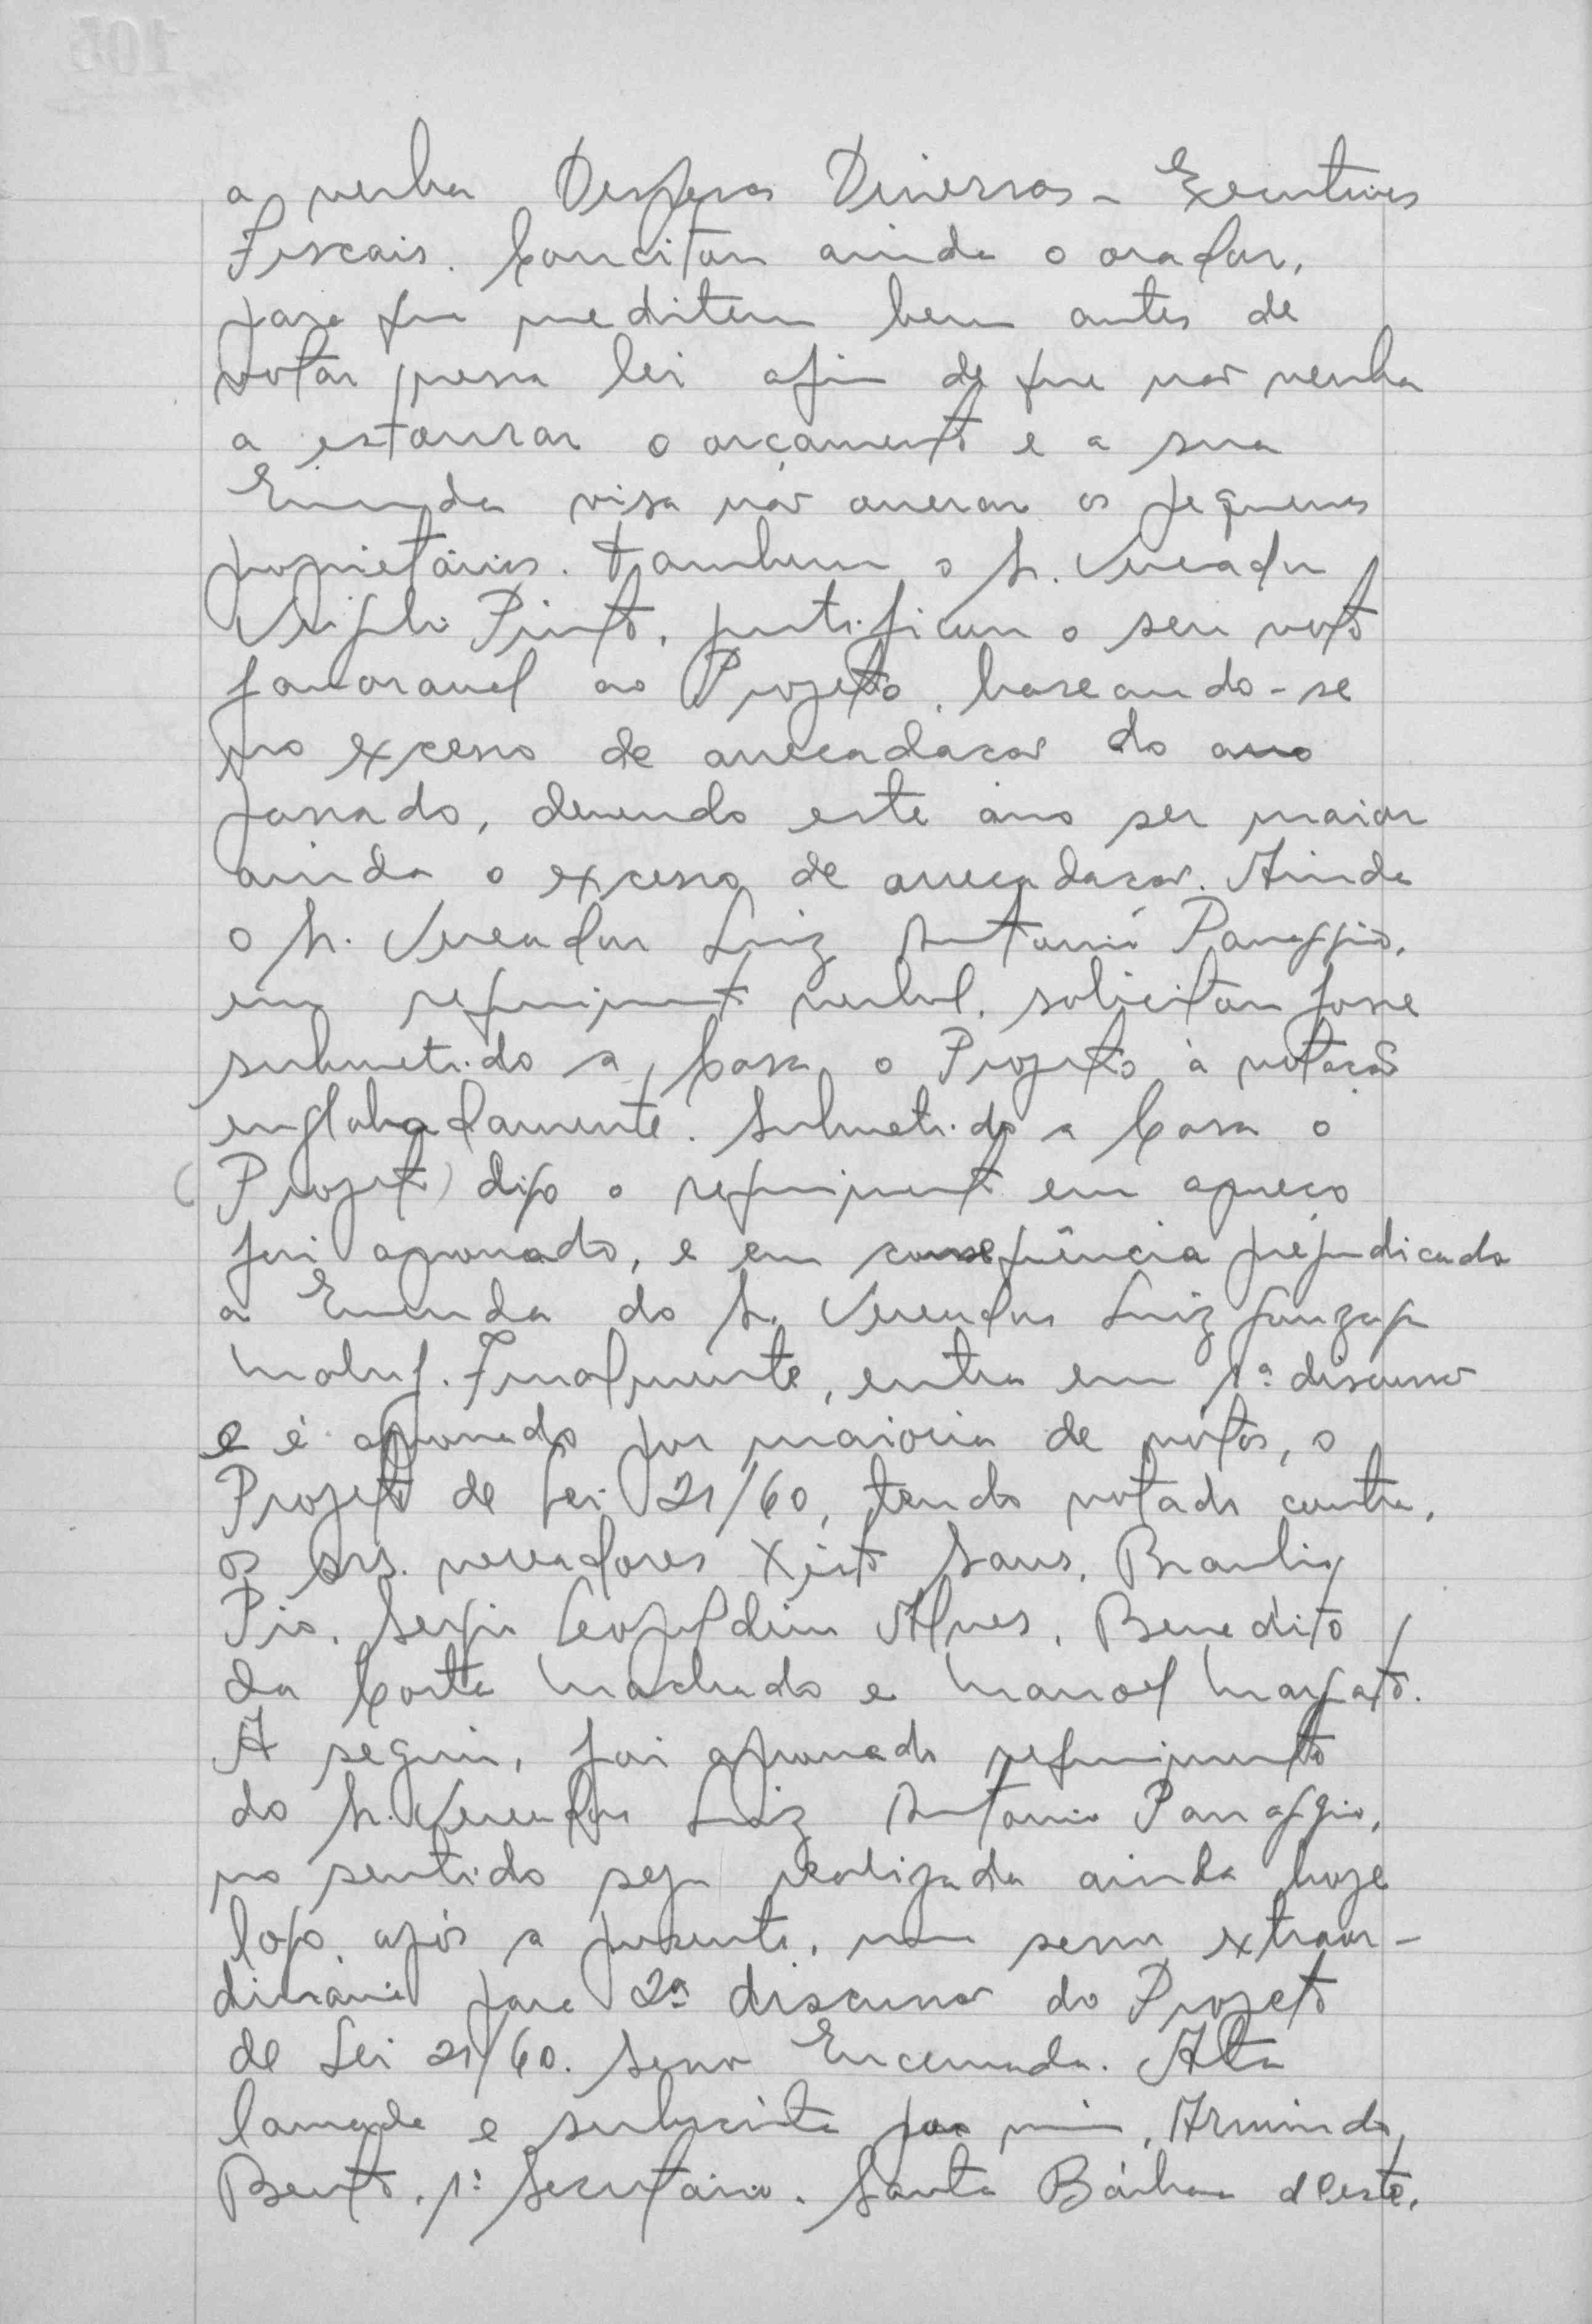 a verba Despesas Diversas - Executivos
Fiscais. Concitou ainda o orador,
para que meditem bem antes de
votar nessa lei afim de que não venha
a estourar o orçamento e a sua
Emenda visa não onerar os pequenos
proprietários. Tambem o Sr. Vereador
Pinto, justificou o seu voto
favoravel ao Projeto, baseando-se
no excesso de arrecadação do ano
passado, devendo este ano ser maior
ainda o excesso de arrecadação. Ainda
o Sr. Vereador Luiz Antonio Panaggio,
em requerimento verbal, solicitou fosse
submetido a Casa o Projeto à votação
englobadamente. Submetido a Casa o
(Projeto) digo o requerimento em apreço
foi aprovado, e em consequência prejudicada
a Emenda do Sr. Vereador Luiz Gonzaga
Maluf. Finalmente, entra em 1ª discussão
e é aprovado por maioria de votos, o
Projeto de Lei 21/60, tendo votado contra,
os srs. vereadores Xisto Sans, Braulio
Pio, Sergio Leopoldino Alves, Benedito
da Costa Machado e Manoel Margato.
A seguir, foi aprovado requerimento
do Sr. Vereador Luiz Antonio Panaggio,
no sentido seja realizada ainda hoje
logo, após a presente, uma sessão extraor-
dinária para 2ª discussão do Projeto
de Lei 21/60. Sessão Encerrada. Ata
lavrada e subscrita por mim, Armindo
Bento, 1º Secretário. Santa Bárbara d'Oeste,